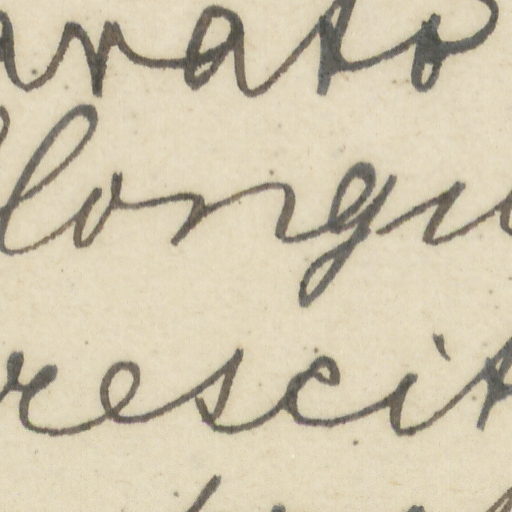 arato
longu
rescit